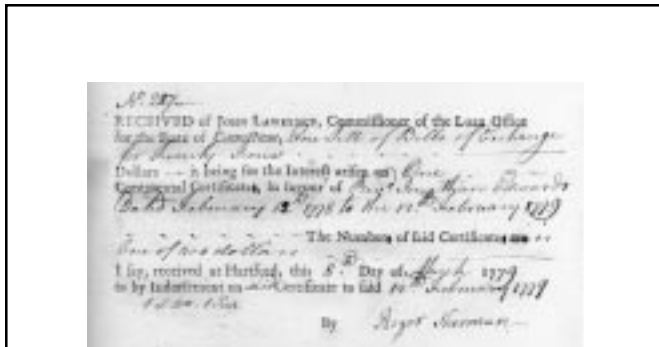 No. 287
RECEIVED of JOHN LAWRENCE, Commissioner of the Loan Office
for the State of Connecticut, One Sett of Bills of Exchange
for Twenty
Dollars — is being for the Interest arisen on One
Continental Certificates, in favour of Edwards
Dated February 12th 1778 to the 12th February 1779
The Number of said Certificates
One of dollars
I say, received at Hartford, this 8th Day of 1779
to by Indorsement on said Certificate to said 12th February 1779
By Roger Sherman